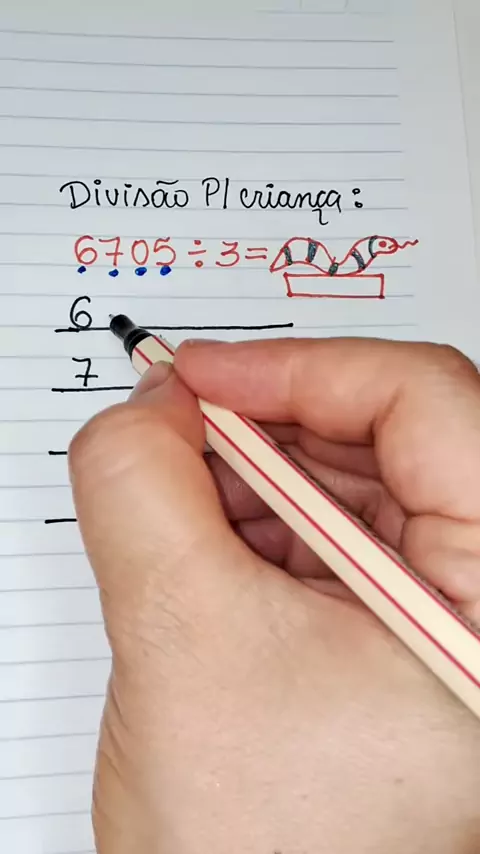 Divisão P/ criança:
6705÷3=
6
7